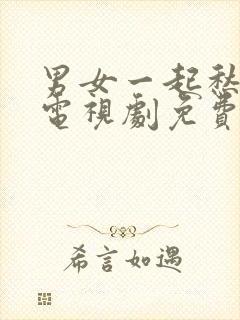 男女一起愁
電視劇免費
希言如遇